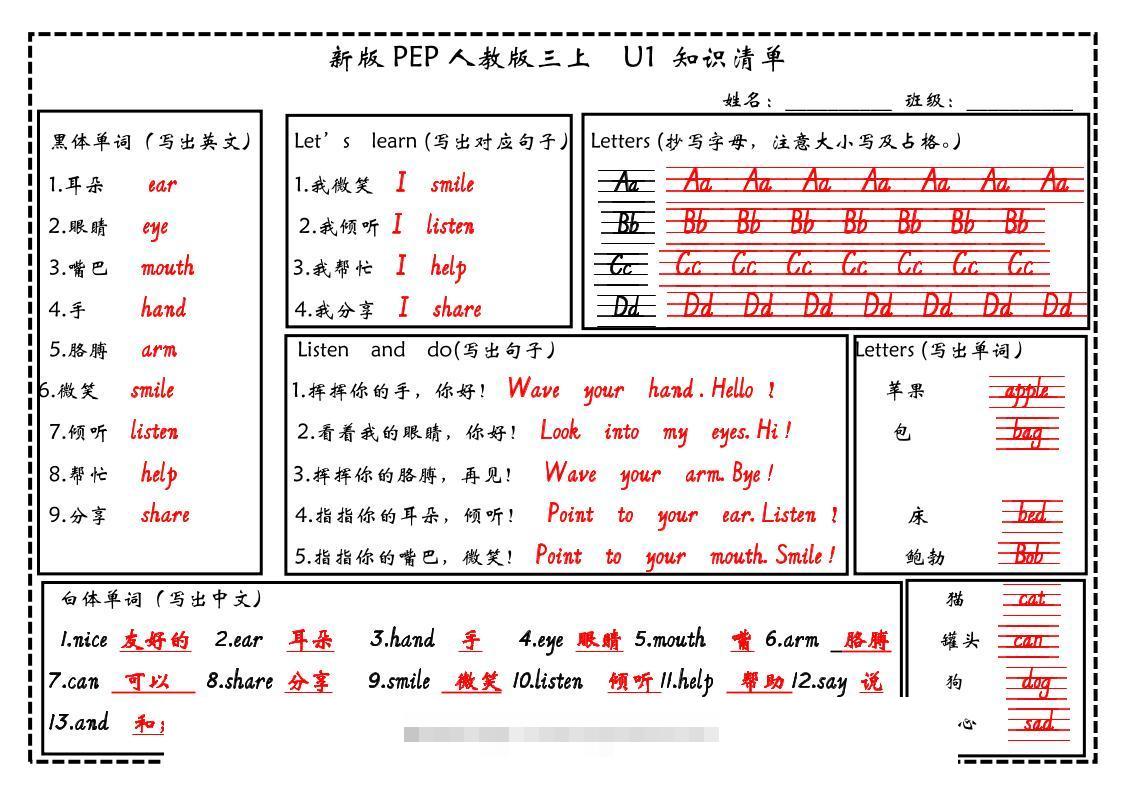 新版 PEP 人教版三上 U1 知识清单
姓名： 班级：
黑体单词（写出英文）
1.耳朵 ear
2.眼睛 eye
3.嘴巴 mouth
4.手 hand
5.胳膊 arm
6.微笑 smile
7.倾听 listen
8.帮忙 help
9.分享 share
Let's learn (写出对应句子)
1.我微笑 I smile
2.我倾听 I listen
3.我帮忙 I help
4.我分享 I share
Letters (抄写字母，注意大小写及占格。)
Aa Aa Aa Aa Aa Aa Aa Aa
Bb Bb Bb Bb Bb Bb Bb Bb
Cc Cc Cc Cc Cc Cc Cc Cc
Dd Dd Dd Dd Dd Dd Dd Dd
Listen and do(写出句子)
1.挥挥你的手，你好！ Wave your hand. Hello !
2.看着我的眼睛，你好！ Look into my eyes. Hi !
3.挥挥你的胳膊，再见！ Wave your arm. Bye !
4.指指你的耳朵，倾听！ Point to your ear. Listen !
5.指指你的嘴巴，微笑！ Point to your mouth. Smile !
Letters (写出单词)
苹果 apple
包 bag
床 bed
鲍勃 Bob
猫 cat
罐头 can
狗 dog
心 sad
白体单词（写出中文）
1.nice 友好的 2.ear 耳朵 3.hand 手 4.eye 眼睛 5.mouth 嘴 6.arm 胳膊
7.can 可以 8.share 分享 9.smile 微笑 10.listen 倾听 11.help 帮助 12.say 说
13.and 和;